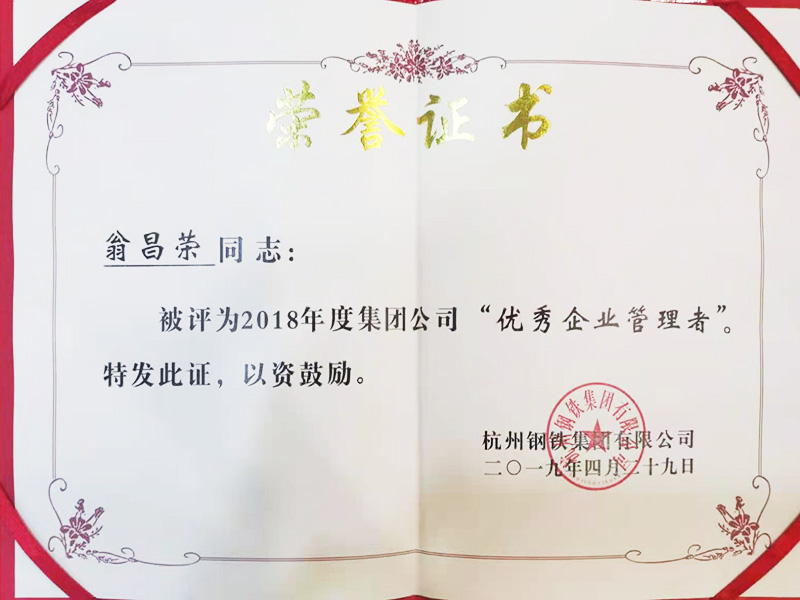 荣誉证书
翁昌荣同志：
被评为2018年度集团公司“优秀企业管理者”。
特发此证，以资鼓励。
杭州钢铁集团有限公司
二〇一九年四月二十九日
杭州钢铁集团有限公司